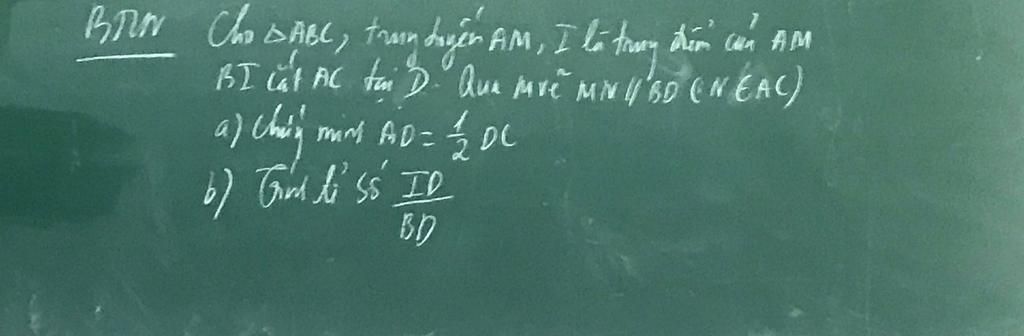 BTVN Cho ΔABC, trung tuyến AM, I là trung điểm của AM
BI cắt AC tại D. Qua M vẽ MN // BD (N ∈ AC)
a) Chứng minh AD = 1/2 DC
b) Tính tỉ số ID/BD